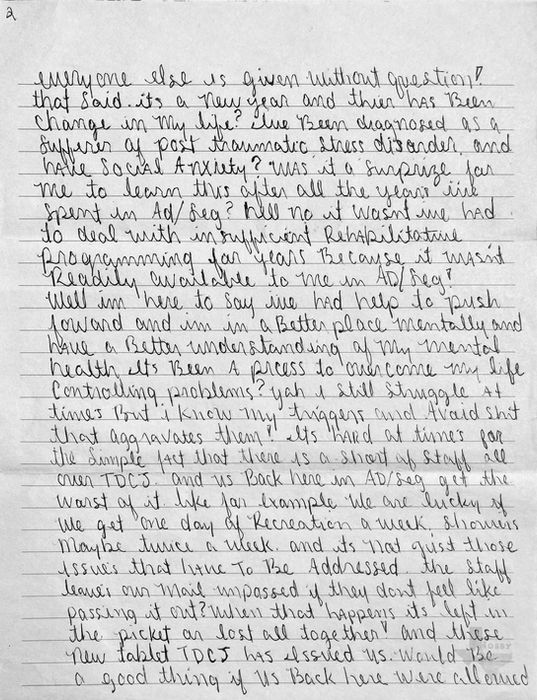 2
everyone else is given without question!
that said. its a new year and thier has Been
change in my life? I've Been diagnosed as a
sufferer of post traumatic stress disorder. and
have Social Anxiety? was it a surprize for
me to learn this after all the years ive
spent in Ad/Seg? hell no it wasnt ive had
to deal with insufficient Rehabilitative
programming for years Because it wasn't
Readily available to me in AD/Seg!
Well im here to say ive had help to push
foward and im in a Better place mentally and
have a Better understanding of my mental
health its Been A prcess to overcome my life
Controlling problems? yah i still struggle At
times But i know my triggers and Avoid shit
that aggravates them! Its hard at time's for
the simple fact that there is a short of staff all
over TDCJ. and us Back here in AD/Seg get the
worst of it like for example we are lucky if
we get one day of Recreation a week. showers
maybe twice a week. and its not gist those
issues that have To Be Addressed. the staff
leave's our mail unpassed if they dont feel like
passing it out? When that happens its left in
the picket or lost all together! and these
new tablet TDCJ has issued us. Would Be
a good thing if us Back here were allowed